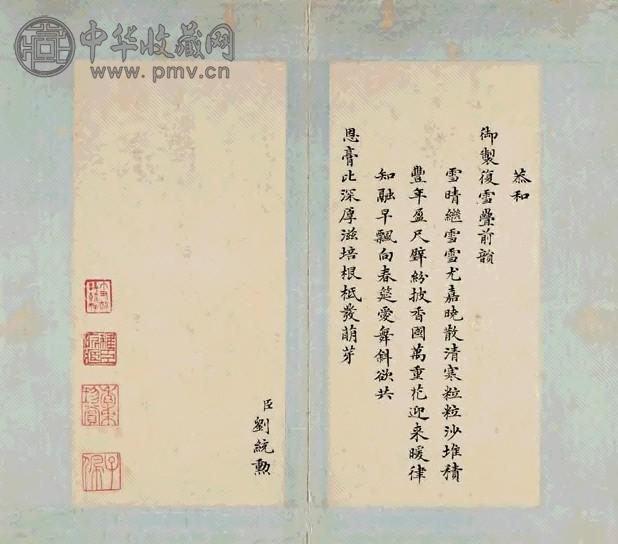 中华收藏网
www.pmv.cn
恭和
御製復雪疊前韻
雪晴繼雪雪尤嘉曉散清寒粒粒沙堆積
豐年盈尺璧紛披香國萬重花迎来暖律
知融早飄向春筵愛舞斜欲共
恩膏比深厚滋培根柢發萌芽
臣劉統勲